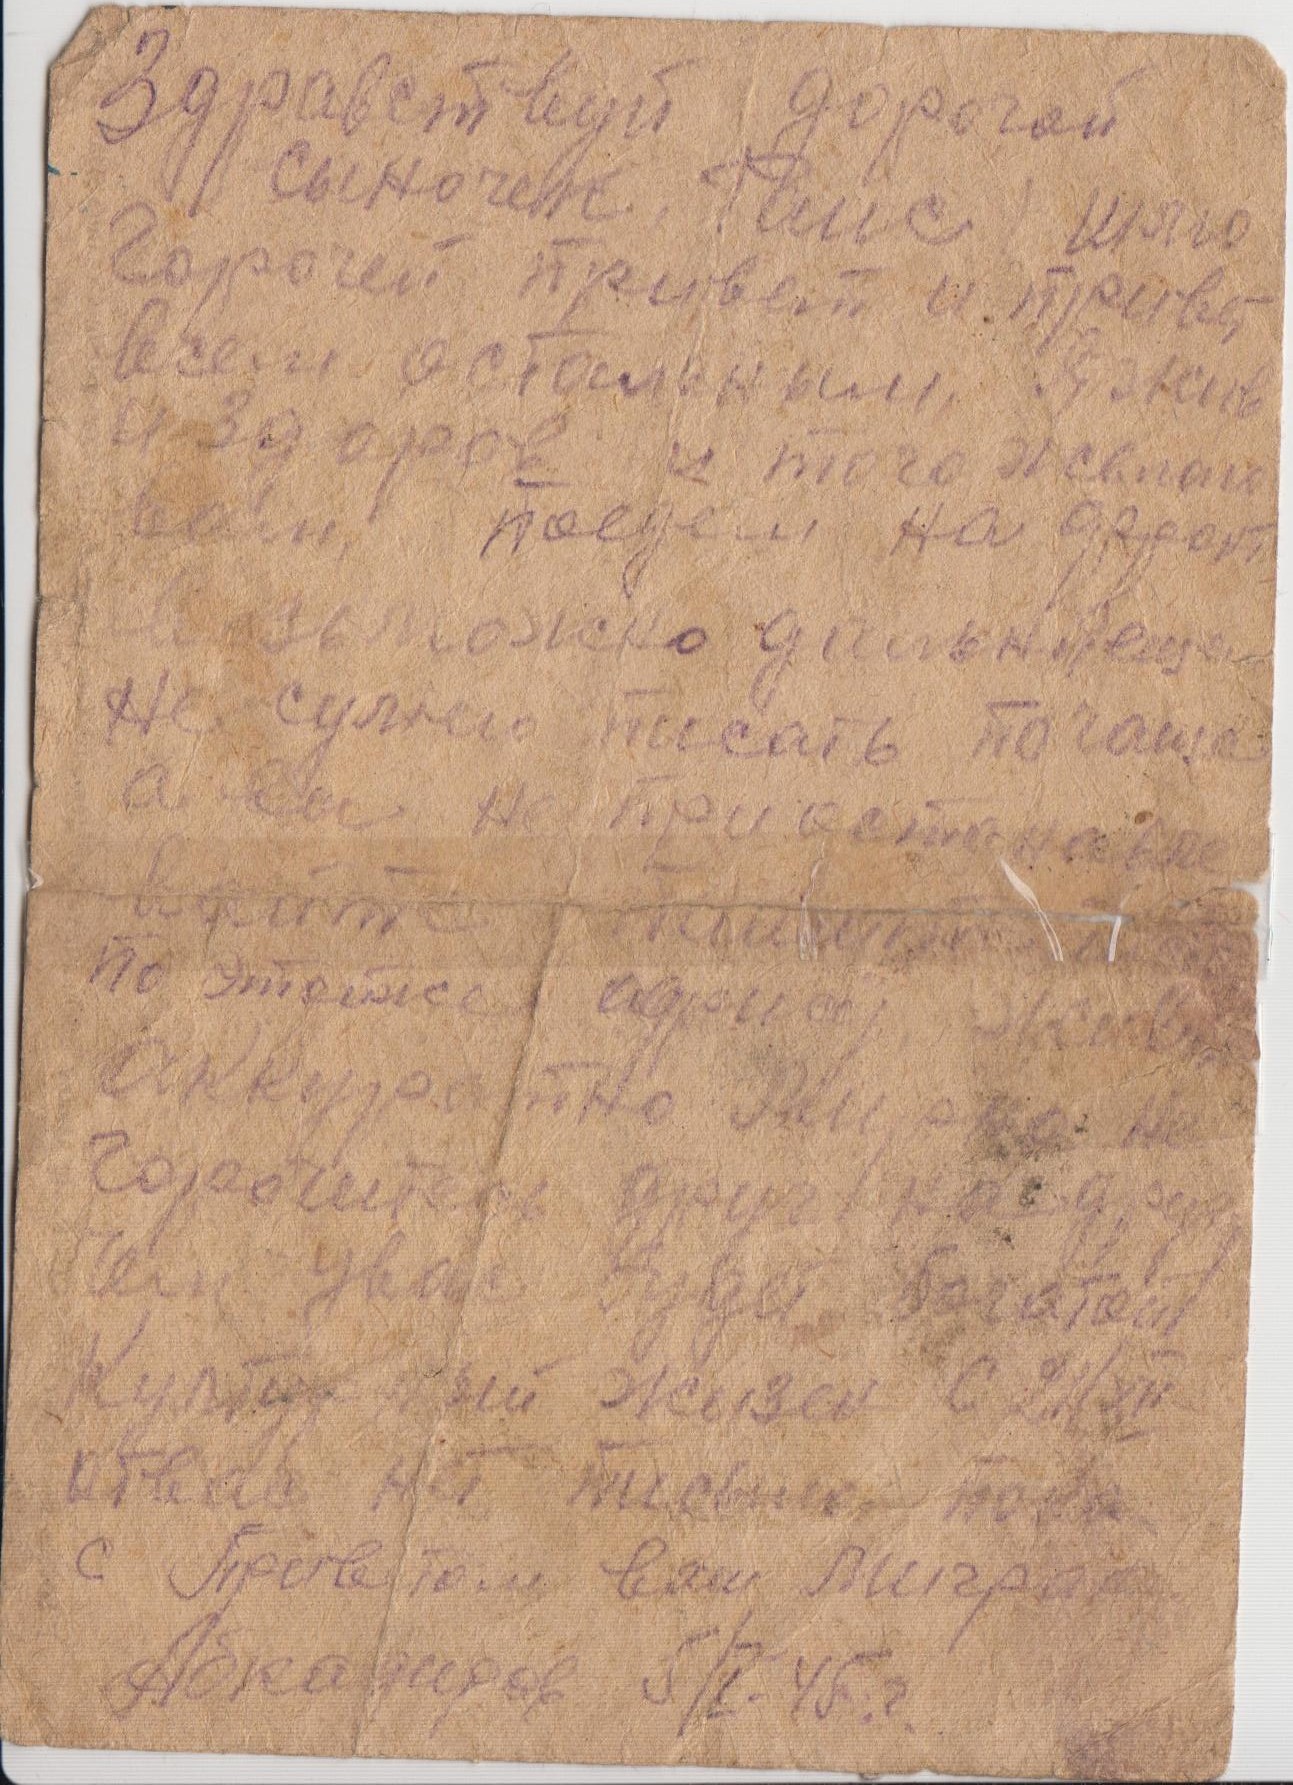 Здравствуй дорогой
сыночек Раис! шлю
Горочей привет и привет
всем остальным. Я жив
и здоров и того желаю
вам, поедем на фронт
возможно дальнейше
не сумею писать почаще
а вы не приостанавле
вайте пишите
по этойже адрису живите
Аккуратно Мирно не
друг на друг
у вас будет богатой
Културный жизен С 24/XII
отвас нет писма пока
с Приветом ваш Мигран
Абкадиров 5/I-45.г.